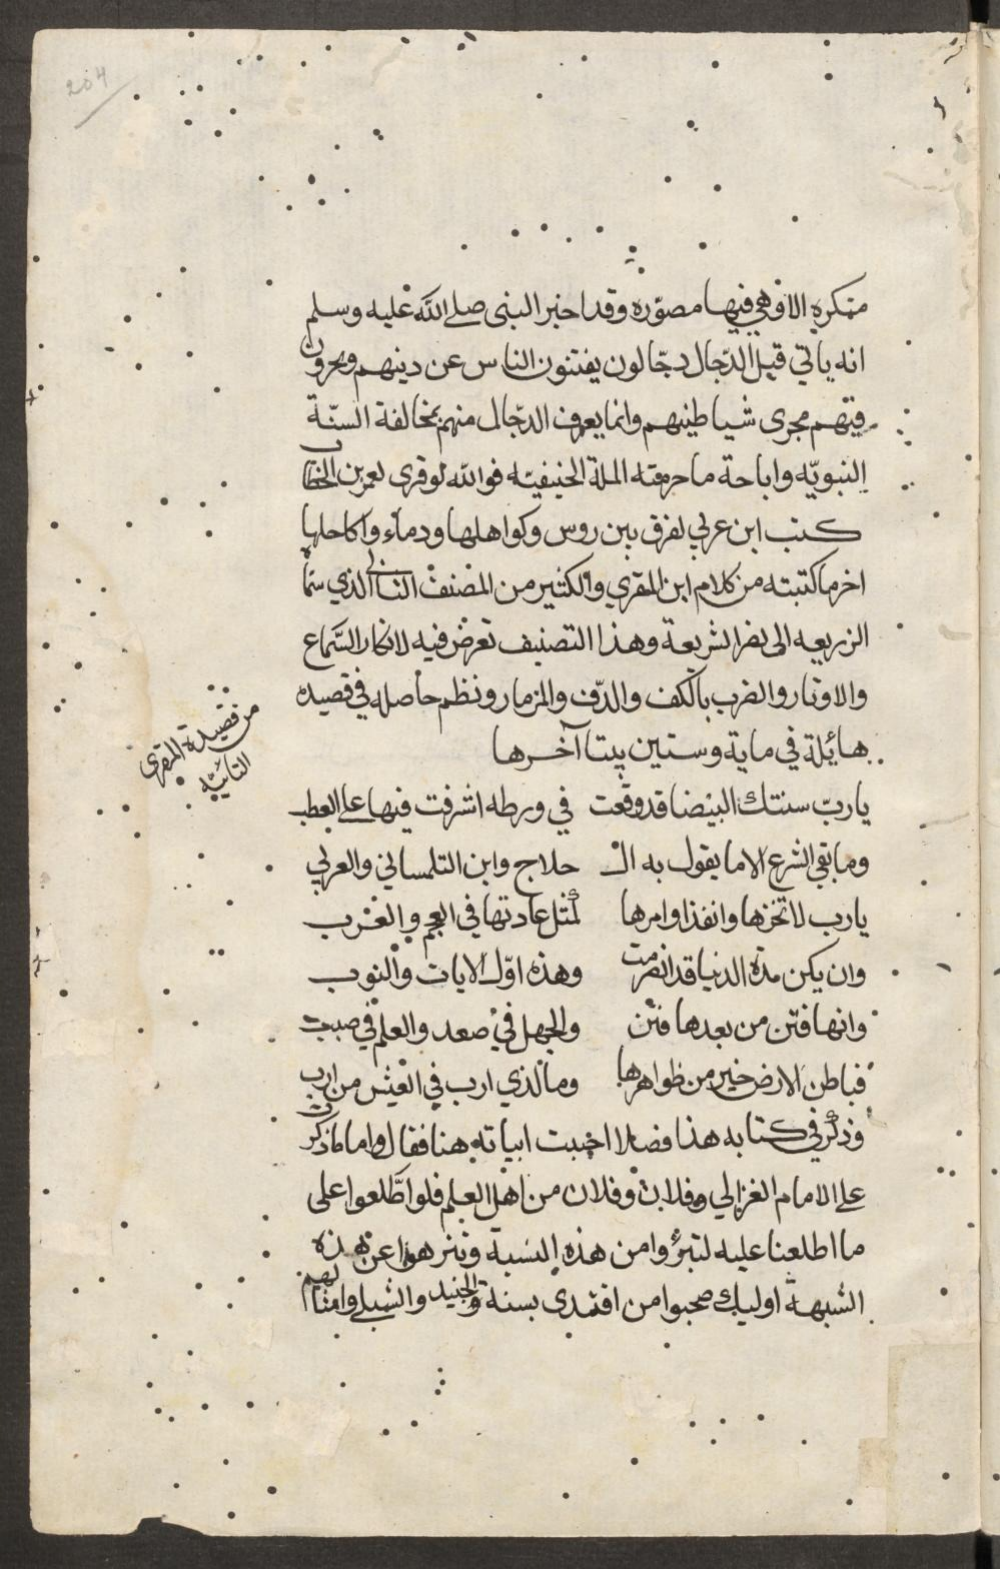 204
متكرره الا وهي فيها مصوّره وقد اخبر النبي صلى الله عليه وسلم
انه ياتي قبل الدّجال دجّالون يفتنون الناس عن دينهم ويجرون
فيهم مجرى شياطينهم وانما يعرف الدجّال منهم بمخالفة السنّة
النبويّه واباحة ما حرمته الملة الحنيفيّه فوالله لو قرى لعمر بن الخطاب
كتب ابن عربي لفرق بين روس وكواهلها ودماء واكاحلها
اخر ما كتبته من كلام ابن المقري والكثير من المصنف الثاني الذي سمّا
الزريعه الى نصر الشريعة وهذا التصنيف تعرض فيه لانكار السّماع
والاوتار والضرب بالكف والدّف والمزمار ونظم حاصله في قصيده
هايلة في ماية وستين بيتا آخرها
من قصيدة المقري
التائيّه
يا ربّ سنتك البيضا قد وقعت في ورطه اشرفت فيها على العطب
وما بقي الشرع الا ما يقول به الـ حلاج وابن التلمساني والعربي
يا رب لا تخزها وانفذ اوامرها لمثل عادتها في العجم والعرب
وان يكن مدّة الدنيا قد انصرمت وهذه اوّل الايات والنوب
وانها فتن من بعدها فتن والجهل في صعد والعلم في صبب
فباطن الارض خير من ظواهرها وما لذي ارب في العيش من ارب
وذكر في كتابه هذا فصلا احببت اثباته هنا فقال واما ما ذكرت
على الامام الغزالي وفلان وفلان من اهل العلم فلو اطّلعوا على
ما اطلعنا عليه لتبرؤوا من هذه النسبة وتنزهوا عن هذه
الشبهة اوليك صحبوا من اقتدى بسنة والجنيد والشبلي وامثالهم